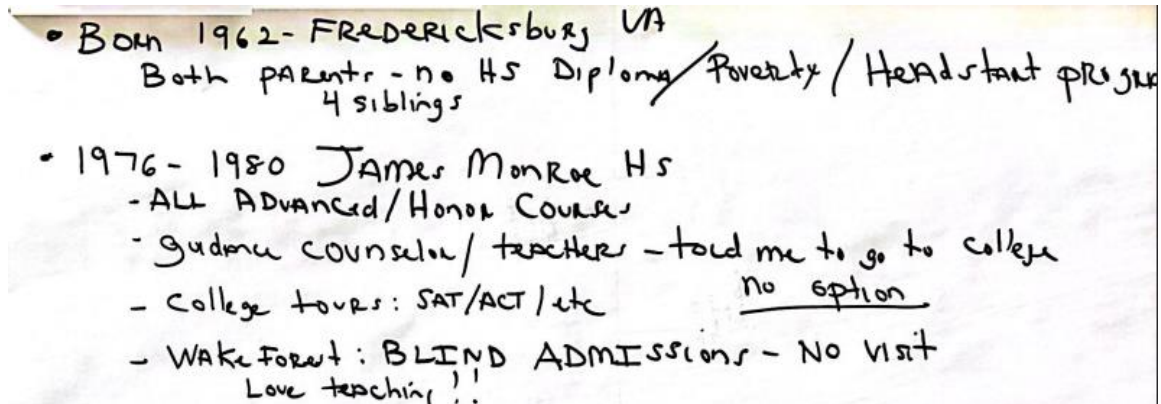 • Born 1962 - Fredericksburg VA
Both parents - no HS Diploma / Poverty / Headstart
4 siblings
• 1976 - 1980 James Monroe HS
- ALL Advanced / Honor Courses
- counselor / teachers - told me to go to college
- College tours: SAT/ACT / etc no option
- Wake Forest: BLIND ADMISSIONS - No visit
Love teaching!!